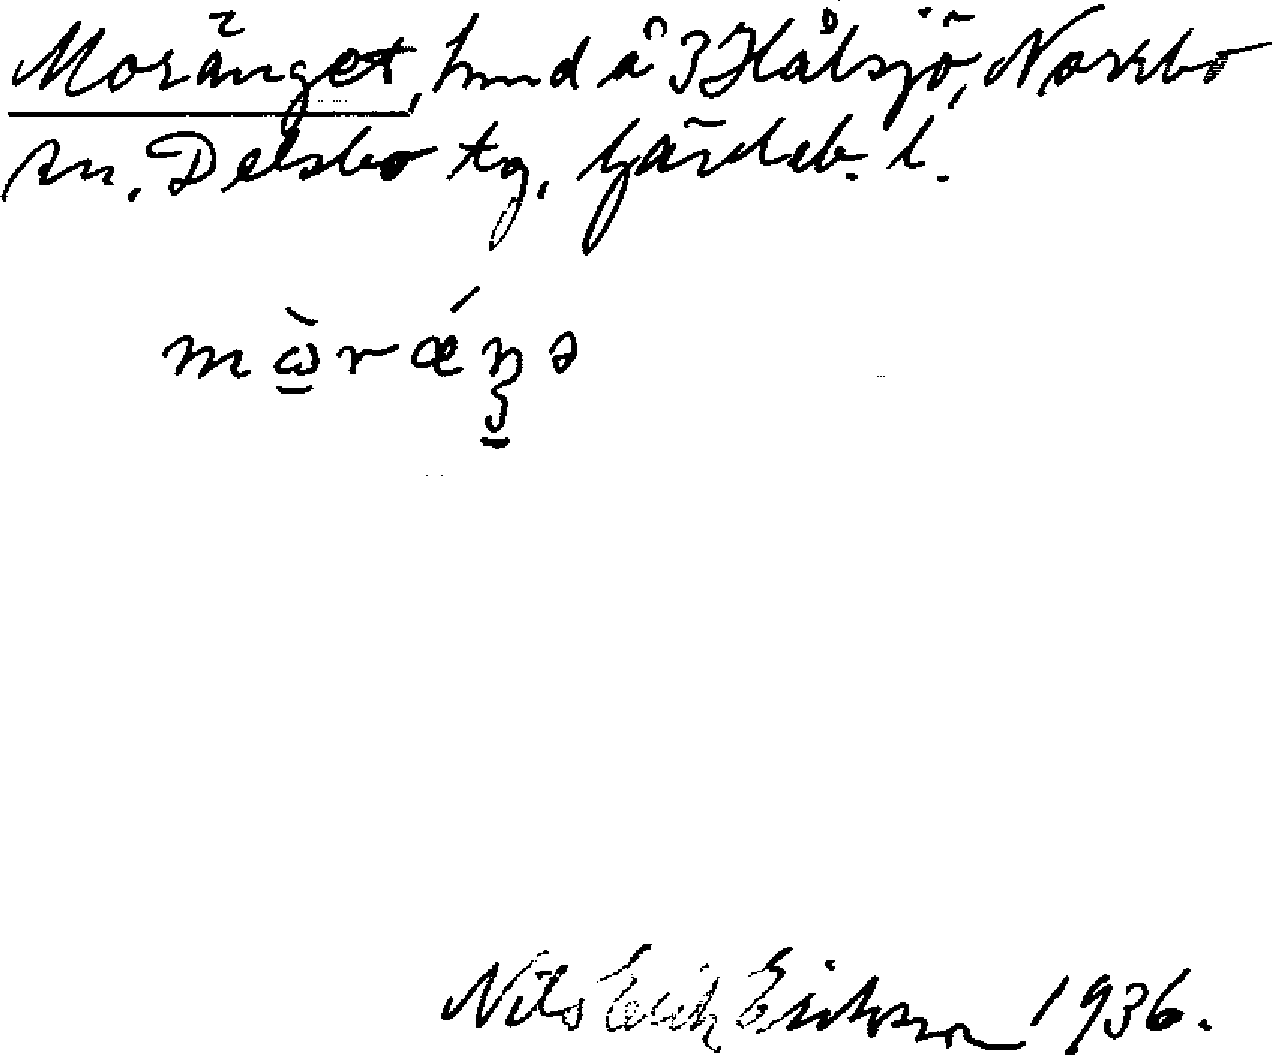 Moränget, hmd å 3 Hålsjö, Norrbo
sn. Delsbo tg, Gävleb. l.
mὼ̠rǽŋ̠ə
Nils Erik Erikson 1936.